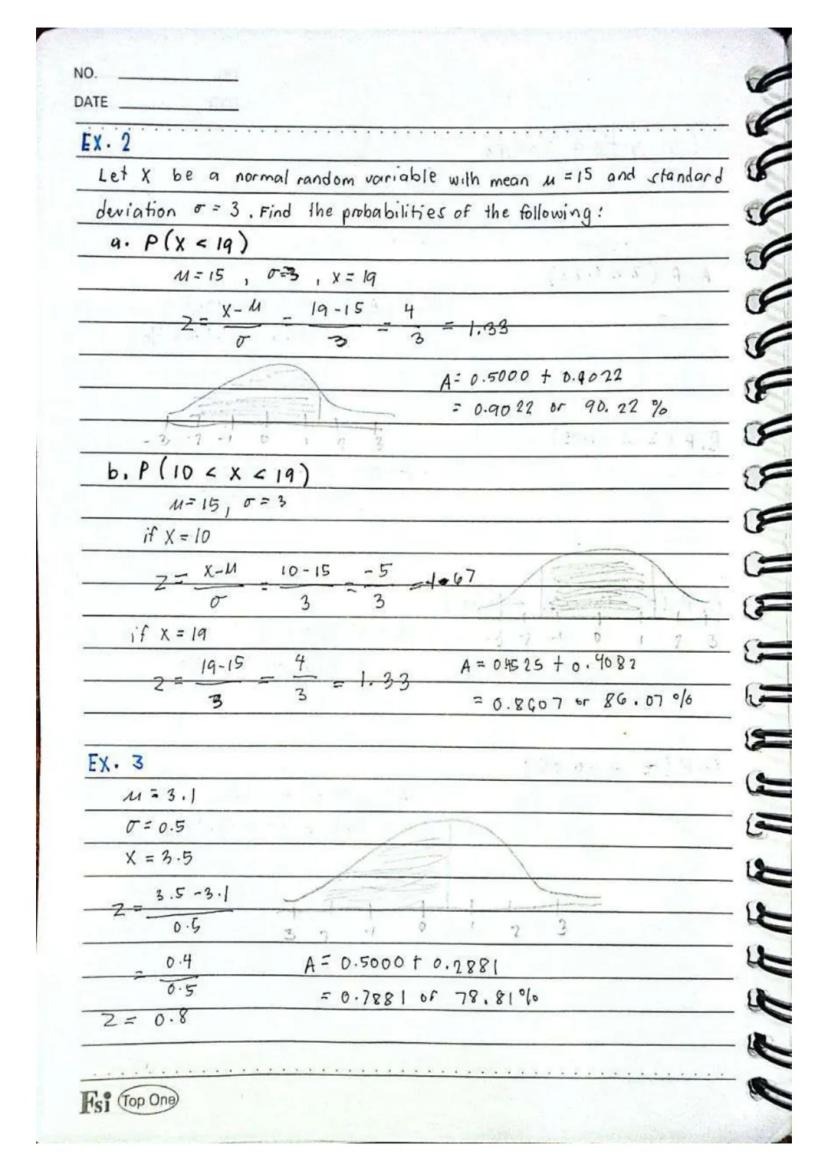 NO.
DATE
EX. 2
Let X be a normal random variable with mean μ = 15 and standard
deviation σ = 3. Find the probabilities of the following:
a. P(X < 19)
μ = 15, σ=3, x = 19
Z = x-μ/σ = 19-15/3 = 4/3 = 1.33
A = 0.5000 + 0.4022
= 0.9022 or 90.22 %
-3 -2 -1 0 1 2 3
b. P(10 < x < 19)
μ = 15, σ = 3
if x = 10
Z = x-μ/σ = 10-15/3 = -5/3 = -1.67
-3 -2 -1 0 1 2 3
if x = 19
Z = 19-15/3 = 4/3 = 1.33
A = 0.4525 + 0.4082
= 0.8607 or 86.07 %
EX. 3
μ = 3.1
σ = 0.5
X = 3.5
Z = 3.5-3.1/0.5
3 2 -1 0 1 2 3
= 0.4/0.5
A = 0.5000 + 0.2881
= 0.7881 or 78.81%
Z = 0.8
Fsi Top One